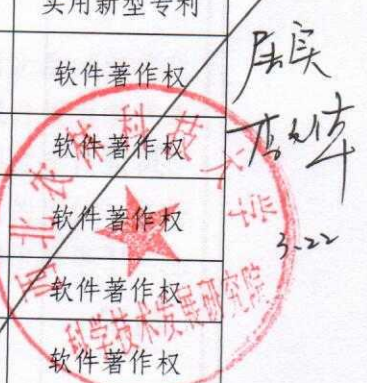 实用新型专利
软件著作权
软件著作权
软件著作权
软件著作权
软件著作权
属实
3.22
西北农林科技大学
科学技术发展研究院